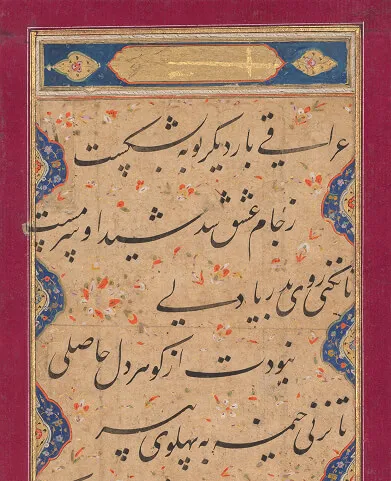 عراقی بار دیگر توبه بشکست
ز جام عشق شد شیدا و سرمست
تا نکنی روی بدریا دلی
نبودت از کوهر دل حاصلی
تا نزنی خیمه به پهلوی پیر